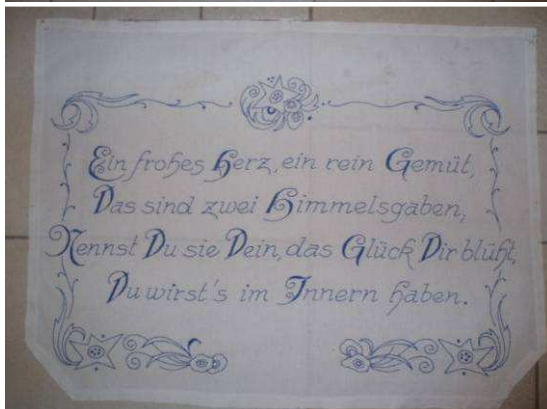 Ein frohes Herz, ein rein Gemüt,
Das sind zwei Himmelsgaben,
Nennst Du sie Dein, das Glück Dir blüht,
Du wirst's im Innern haben.